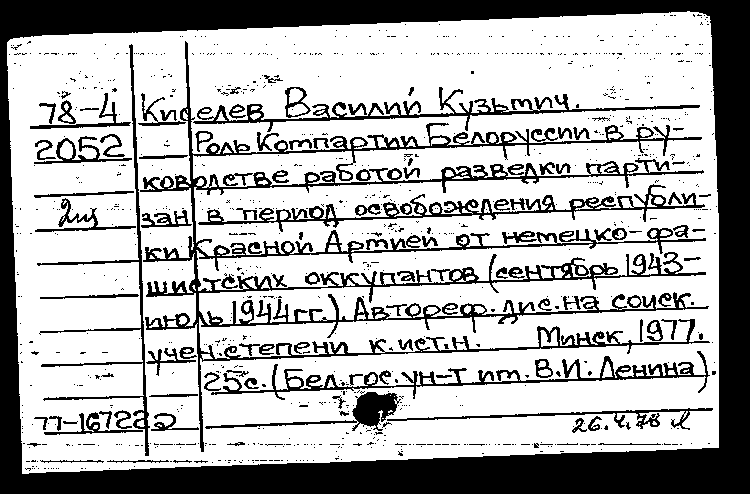 78-4 Киселев, Василий Кузьмич.
2052 Роль Компартии Белоруссии в ру-
ководстве работой разведки парти-
зан в период освобождения республи-
ки Красной Армией от немецко-фа-
шистских оккупантов (сентябрь 1943-
июль 1944 гг.). Автореф. дис. на соиск.
учен. степени к. ист. н. Минск, 1977.
25с. (Бел. гос. ун-т им. В.И. Ленина).
26.4.78